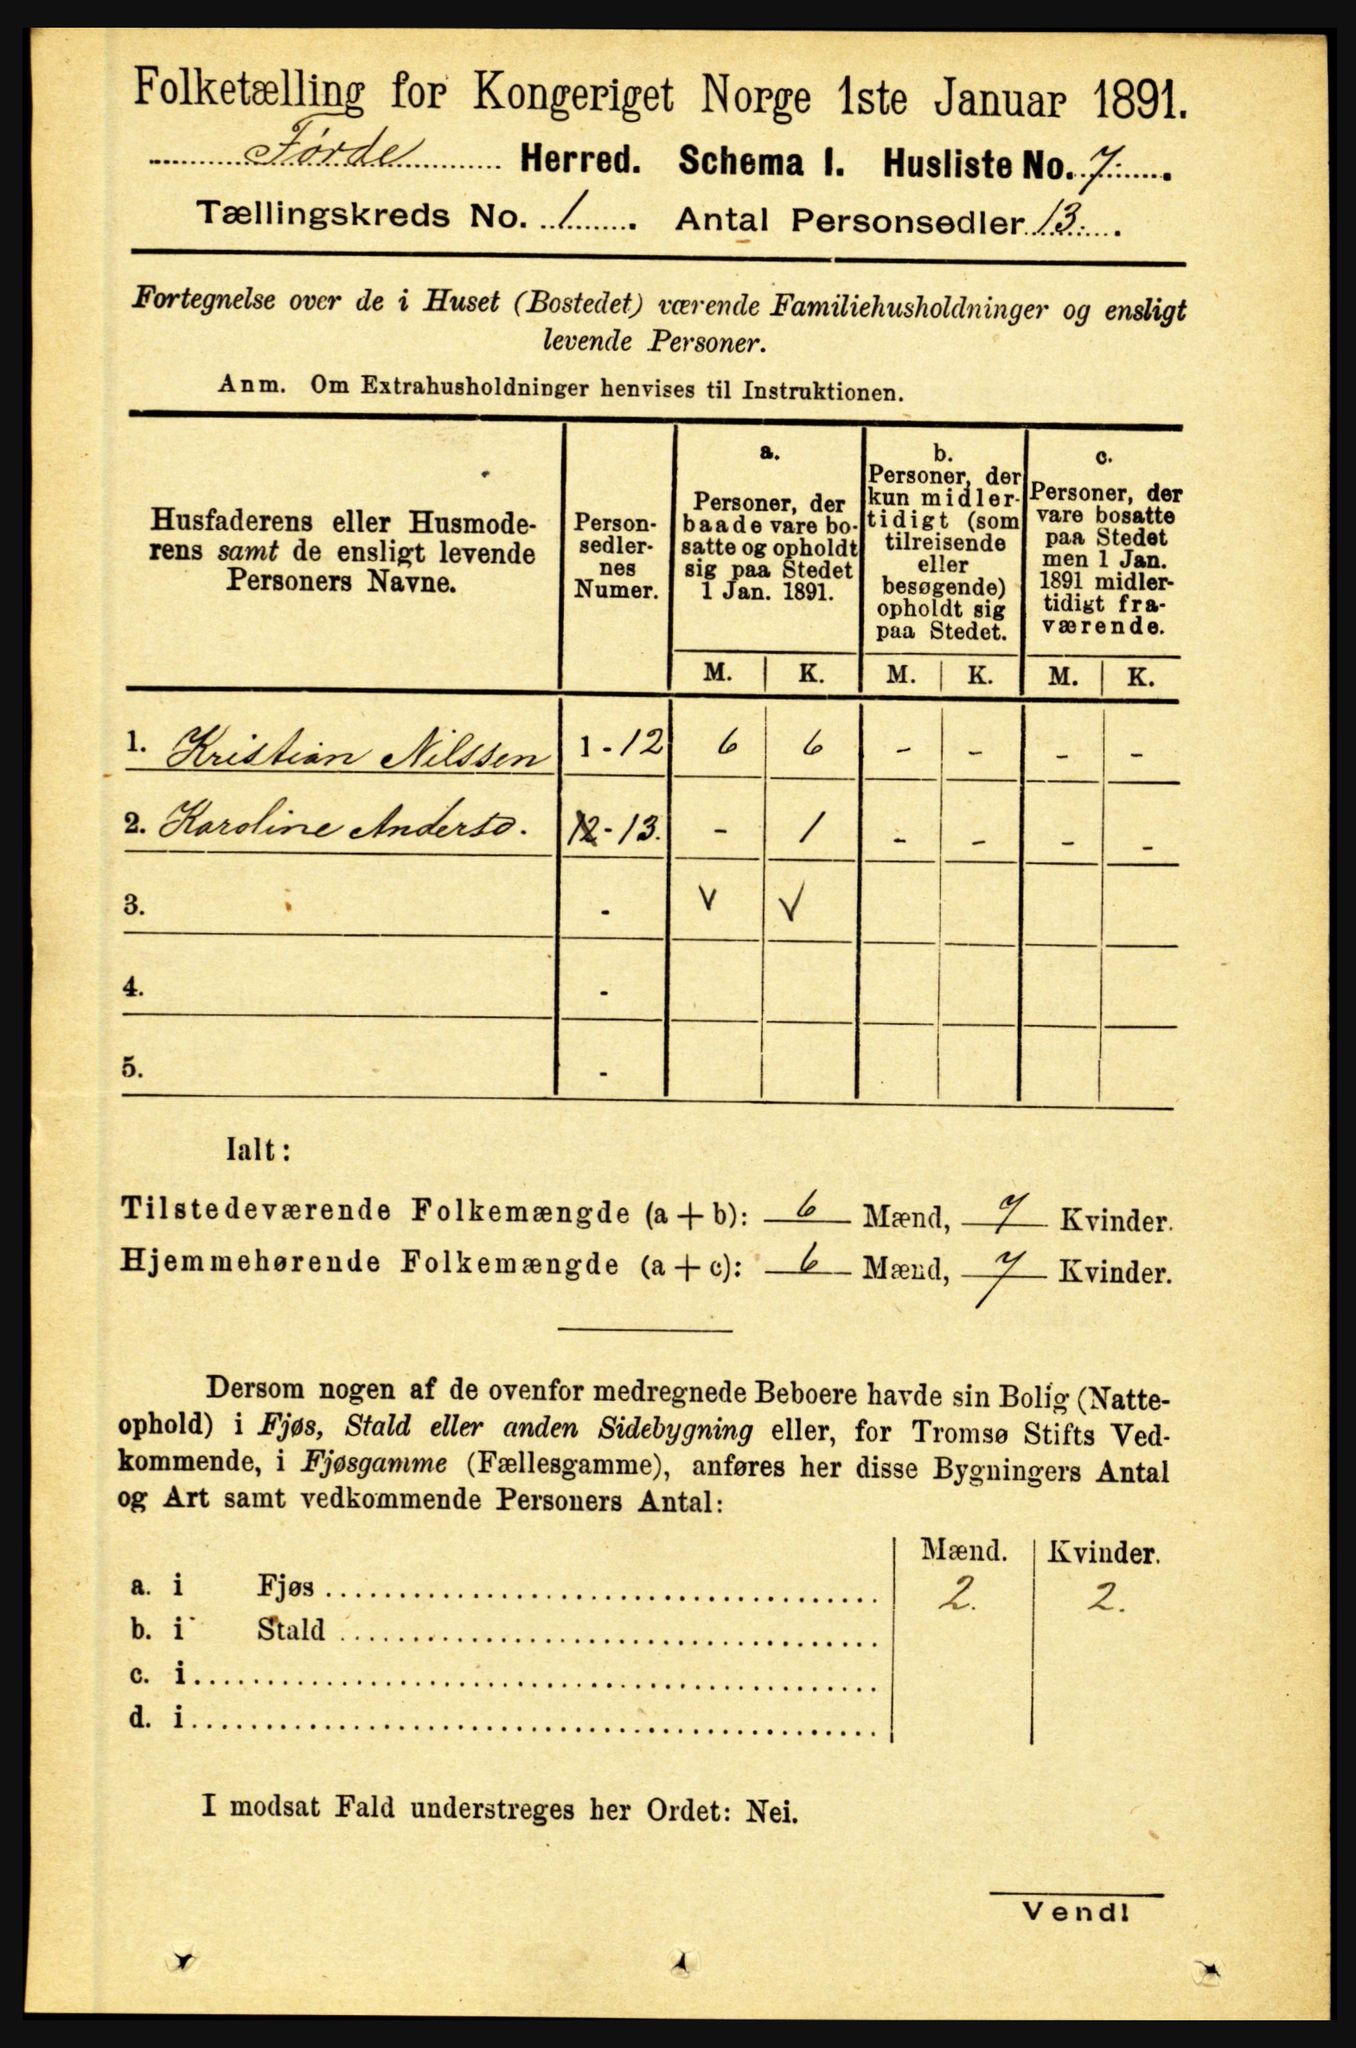 Folketælling for Kongeriget Norge 1ste Januar 1891.
Førde Herred. Schema 1. Husliste No. 7.
Tællingskreds No. 1. Antal Personsedler 13.
Fortegnelse over de i Huset (Bostedet) værende Familiehusholdninger og ensligt
levende Personer.
Anm. Om Extrahusholdninger henvises til Instruktionen.
Husfaderens eller Husmode-
rens samt de ensligt levende
Personers Navne.
Person-
sedler-
nes
Numer.
a.
Personer, der
baade vare bo-
satte og opholdt
sig paa Stedet
1 Jan. 1891.
b.
Personer, der
kun midler-
tidigt (som
tilreisende
eller
besøgende)
opholdt sig
paa Stedet.
c.
Personer, der
vare bosatte
paa Stedet
men 1 Jan.
1891 midler-
tidigt fra-
værende.
M. K. M. K. M. K.
1. Kristian Nilssen 1 - 12 6 6 - - - -
2. Karoline Andersd. 12 - 13. - 1 - - - -
3. - v v
4. -
5. -
Ialt:
Tilstedeværende Folkemængde (a + b): 6 Mænd, 7 Kvinder.
Hjemmehørende Folkemængde (a + c): 6 Mænd, 7 Kvinder.
Dersom nogen af de ovenfor medregnede Beboere havde sin Bolig (Natte-
ophold) i Fjøs, Stald eller anden Sidebygning eller, for Tromsø Stifts Ved-
kommende, i Fjøsgamme (Fællesgamme), anføres her disse Bygningers Antal
og Art samt vedkommende Personers Antal:
Mænd. Kvinder.
a. i Fjøs 2. 2.
b. i Stald
c. i
d. i
I modsat Fald understreges her Ordet: Nei.
Vend!